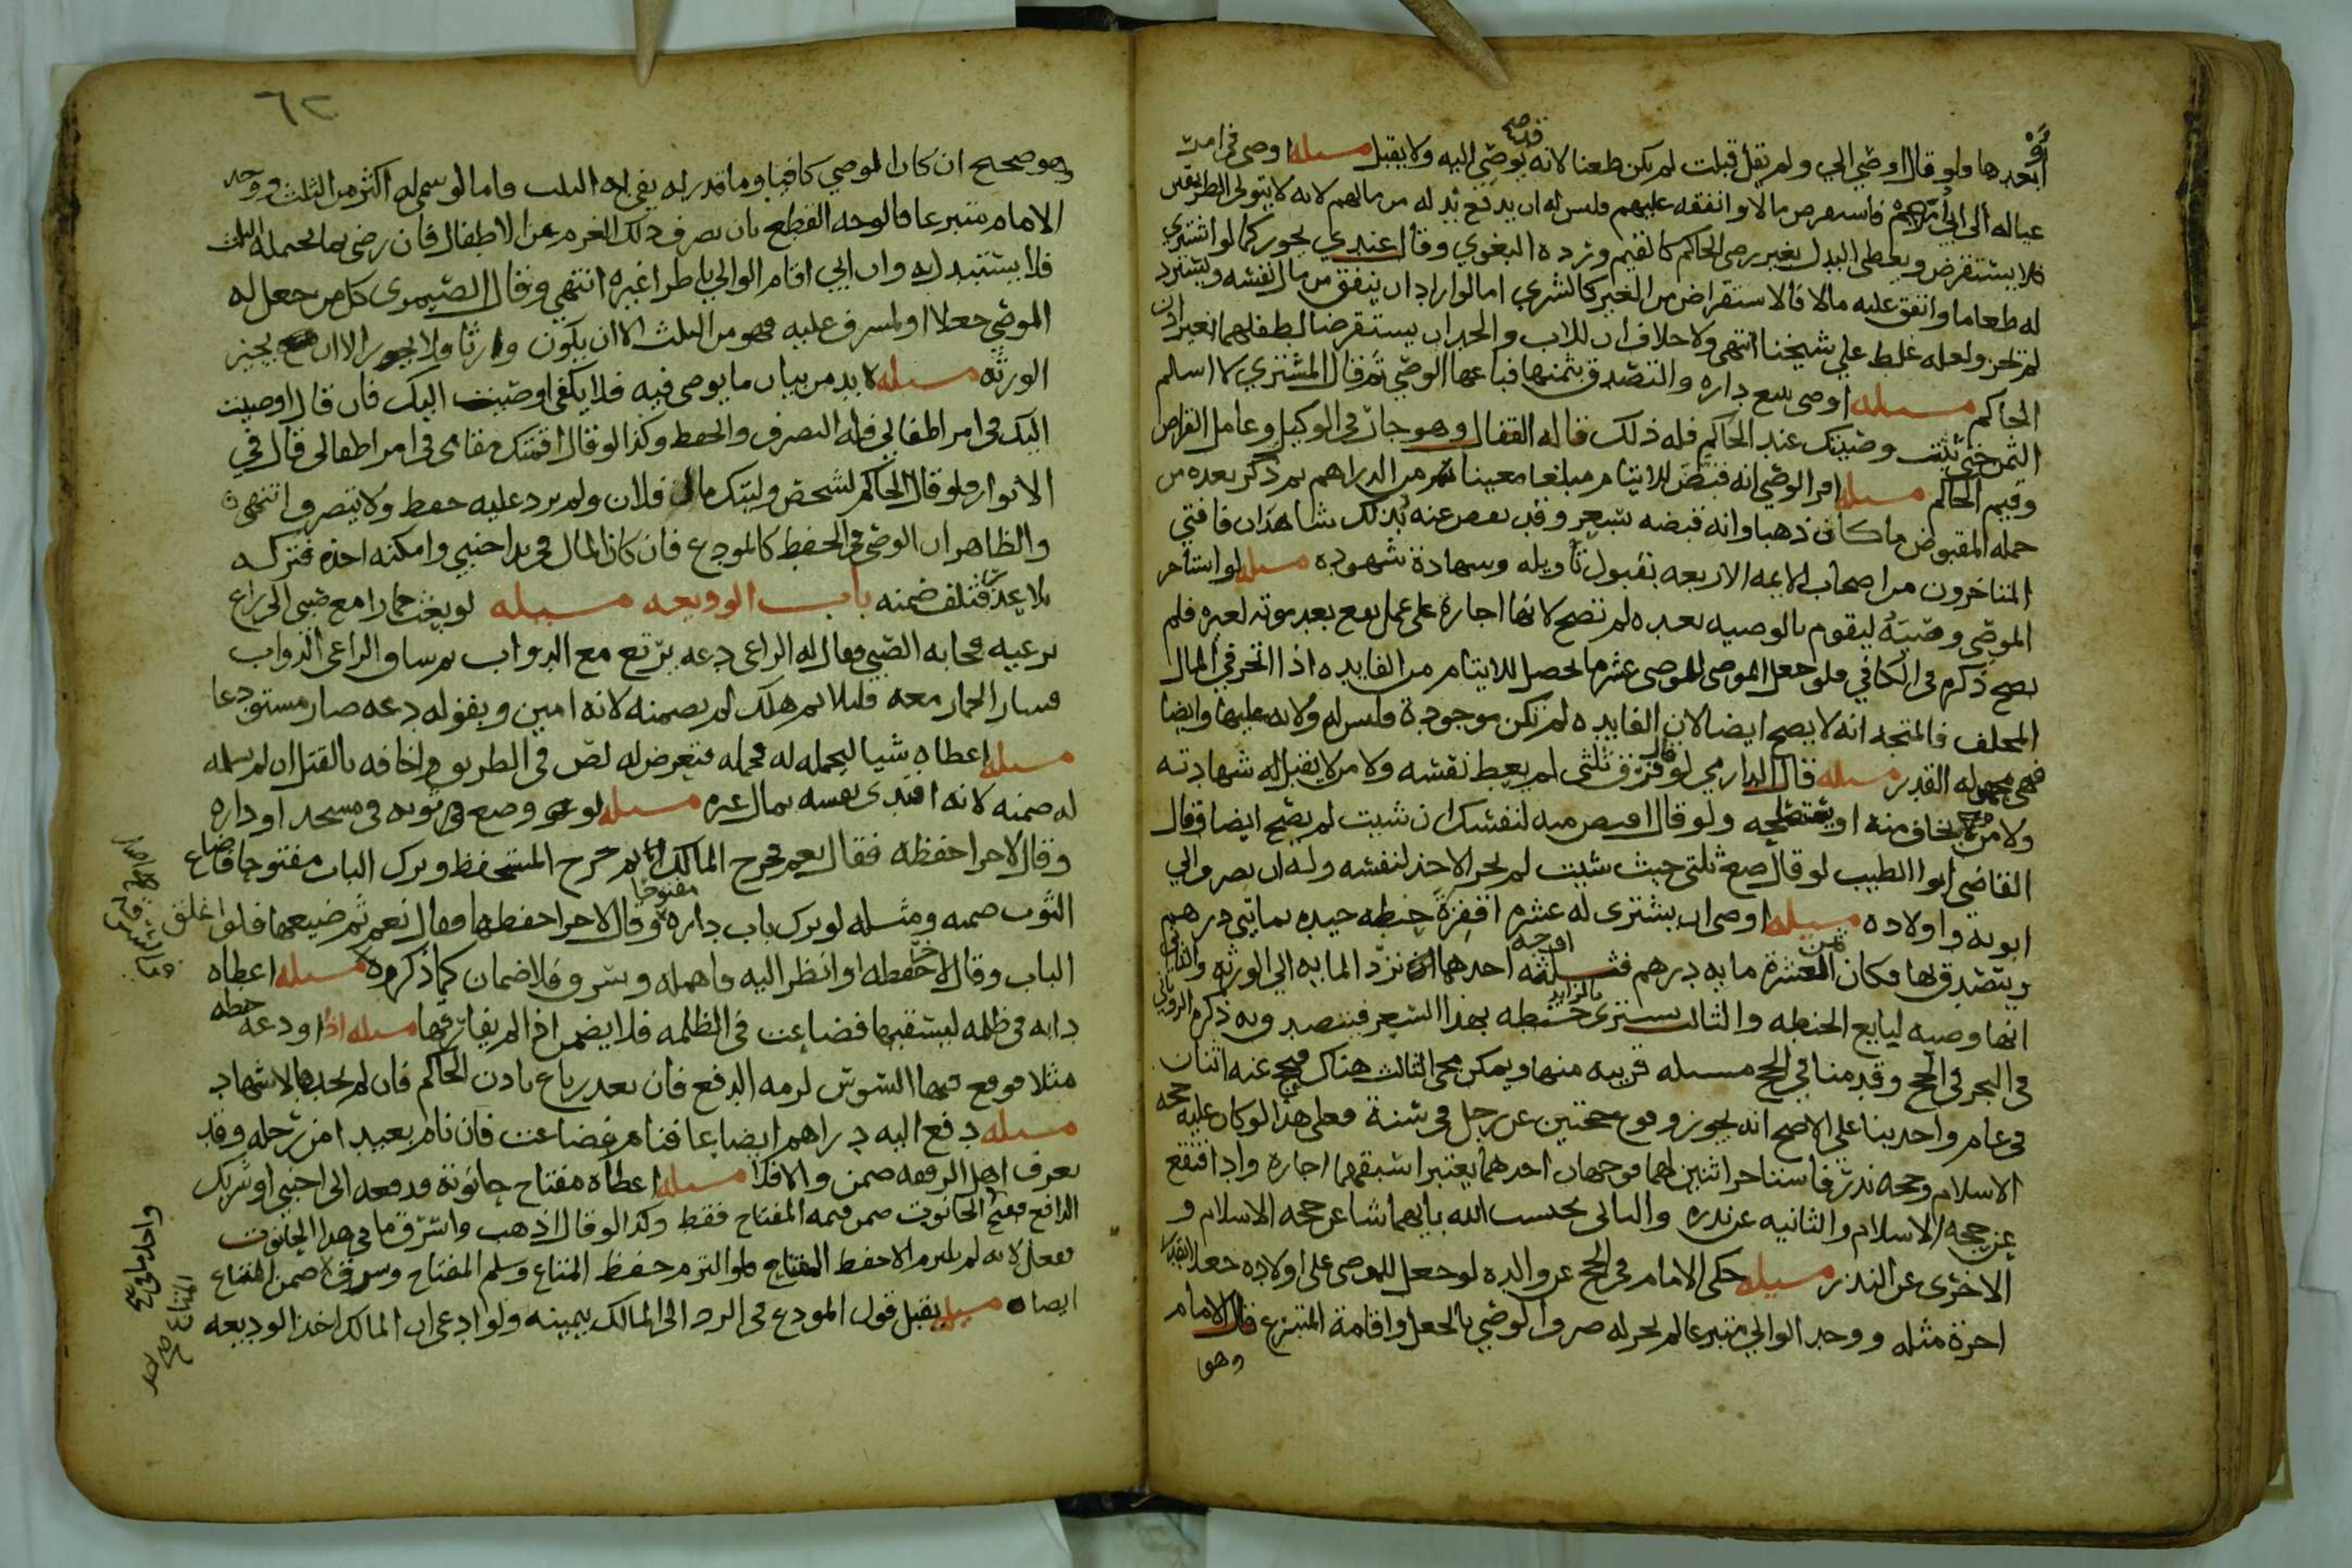 أو
بعدها ولو قال اوصي الي ولم يقل قبلت لم يكن طعنا لانه قد يوصي اليه ولا يقبل مسله اوصى في امر
عياله الى فاستقرض مالا وانفقه عليهم فليس له ان يدفع بدله من مالهم لانه لا يتولى الطرفين
فلا يستقرض ويعطى البدل بغير رضى الحاكم كالقيم ورده البغوي وقال عندي يجوز كما لو اشترى
له طعاما وانفق عليه مالا فالاستقراض من الغير كالشرى اما لو اراد ان ينفق من مال نفسه ويسترد
لم يجز ولعله غلط على شيخنا انتهى ولا خلاف ان للاب والجد ان يستقرضا لطفلهما بغير اذن
الحاكم مسله اوصى ببيع داره والتصدق بثمنها فباعها الوصي ثم قال المشتري لا اسلم
الثمن حتى تثبت وصيتك عند الحاكم فله ذلك قاله القفال وهو جار في الوكيل وعامل القراض
وقيم الحاكم مسله اقر الوصي انه قبض للايتام مبلغا معينا من الدراهم ثم ذكر بعده من
جمله المقبوض ما كان ذهبا وانه قبضه بسعر وقد عنه بذلك شاهدان فافتى
المتاخرون من اصحاب الايمه الاربعه بقبول تاويله وشهادة شهوده مسله لو استاجر
الموصي وصيه ليقوم بالوصيه بعده لم تصح لانها اجارة على عمل يقع بعد موته لغيره فلم
يصح ذكره في الكافي فلو جعل الموصى للوصي عشر ما يحصل للايتام من الفايده اذا اتجر في المال
المخلف فالمتجه انه لا يصح ايضا لان الفايده لم تكن موجودة وليس له ولايه عليها وايضا
فهي مجهوله القدر مسله قال الدارمي لو قال فرق ثلثي لم يعط نفسه ولا من لا يقبل له شهادته
ولا من يخاف منه او يستصلحه ولو قال لنفسك ان شيت لم يصح ايضا وقال
القاضي ابو الطيب لو قال ضع ثلثي حيث شيت لم يجز الاخذ لنفسه وله ان يصرف الي
ابويه واولاده مسله اوصى ان يشترى له عشره اقفزة حنطه جيده بمايتي درهم
ويتصدق بها فكان ثمن العشرة مايه درهم فثلثه اوجه احدها ترد المايه الي الورثه والثاني
انها وصيه لبايع الحنطه والثالث يشترى بالزايد حنطه بهذا السعر فيتصدق به ذكره الروياني
في البحر في الحج وقدمنا في الحج مسله قريبه منها ويمكن مجي الثالث هناك فيحج عنه اثنان
في عام واحد بنا على الاصح انه يجوز وقوع حجتين عن رجل في سنة فعلى هذا لو كان عليه حجه
الاسلام وحجه نذر فاستاجر اثنين لهما فوجهان احدهما يعتبر اسبقهما اجارة واذا فتقع
عن حجه الاسلام والثانيه عن نذره والثاني يحتسب الله بايهما شا عن حجه الاسلام و
الاخرى عن النذر مسله حكى الامام في الحج عن والده لو جعل للموصى على اولاده جعلا
اجرة مثله ووجد الوالي متبرعا لم يجز له صرف الوصي بالجعل واقامة المتبرع قال الامام
وهو
٦٢
وهو صحيح ان كان الموصي كافيا وما قدر له يفي به الثلث فاما لو سمى له اكثر من الثلث ووجد
الامام متبرعا فالوجه القطع بان يصرف ذلك الغرم عن الاطفال فان رضي بما يحمله الثلث
فلا يستبدل به وان ابي اقام الوالي ناظرا غيره انتهى وقال الصيمرى كل من جعل له
الموصي جعلا او لمشرف عليه فهو من الثلث الا ان يكون وارثا ولا يجوز الا ان يجيز
الورثه مسله لا بد من بيان ما يوصى فيه فلا يكفي اوصيت اليك فان قال اوصيت
اليك في امر اطفالي فله التصرف والحفظ وكذا لو قال اقمتك مقامى في امر اطفالى قال في
الانوار ولو قال الحاكم لشخص وليتك مال فلان ولم يرد عليه حفظ ولا يتصرف انتهى
والظاهر ان الوصي في الحفظ كالمودع فان كان المال في يد اجنبي وامكنه اخذه فتركه
بلا عذر فتلف ضمنه باب الوديعه مسله لو بعث حمارا مع صبي الى راع
يرعيه فجا به الصبي فقال له الراعي دعه يرتع مع الدواب ثم ساق الراعي الدواب
فسار الحمار معه قليلا ثم هلك لم يضمنه لانه امين وبقوله دعه صار مستودعا
مسله اعطاه شيا ليحمله له فحمله فتعرض له لص في الطريق واخافه بالقتل ان لم يسلمه
له ضمنه لانه افتدى نفسه بمال غيره مسله لو وضع ثوبه في مسجد او داره
وقال لاخر احفظه فقال نعم فخرج المالك ثم خرج المستحفظ وترك الباب مفتوحا فضاع
الثوب ضمنه ومثله لو ترك باب داره مفتوحا وقال لاخر احفظها فقال نعم ثم ضيعها فلو اغلق
الباب وقال لاخر احفظه او انظر اليه فاهمله وسرق فلا ضمان كما ذكروه مسله اعطاه
دابه في ظلمه ليسقيها فضاعت في الظلمه فلا يضمن اذا لم يفارقها مسله اذا اودعه حنطه
مثلا فوقع فيها السوس لزمه الدفع فان تعذر باع باذن الحاكم فان لم يجد فالاشهاد
مسله دفع اليه دراهم ايضاعا فنام فضاعت فان نام بعيد امن رحله وقد
تفرق اهل الرفقه ضمن والا فلا مسله اعطاه مفتاح حانوته فدفعه الى اجنبي او شريك
الدافع ففتح الحانوت ضمن قيمه المفتاح فقط وكذا لو قال اذهب واسرق ما في هذا الحانوت
ففعل لانه لم يلتزم الا حفظ المفتاح ولو التزم حفظ المتاع وسلم المفتاح وسرق ضمن المتاع
ايضا مسله يقبل قول المودع في الرد الى المالك بيمينه ولو ادعى ان المالك اخذ الوديعه